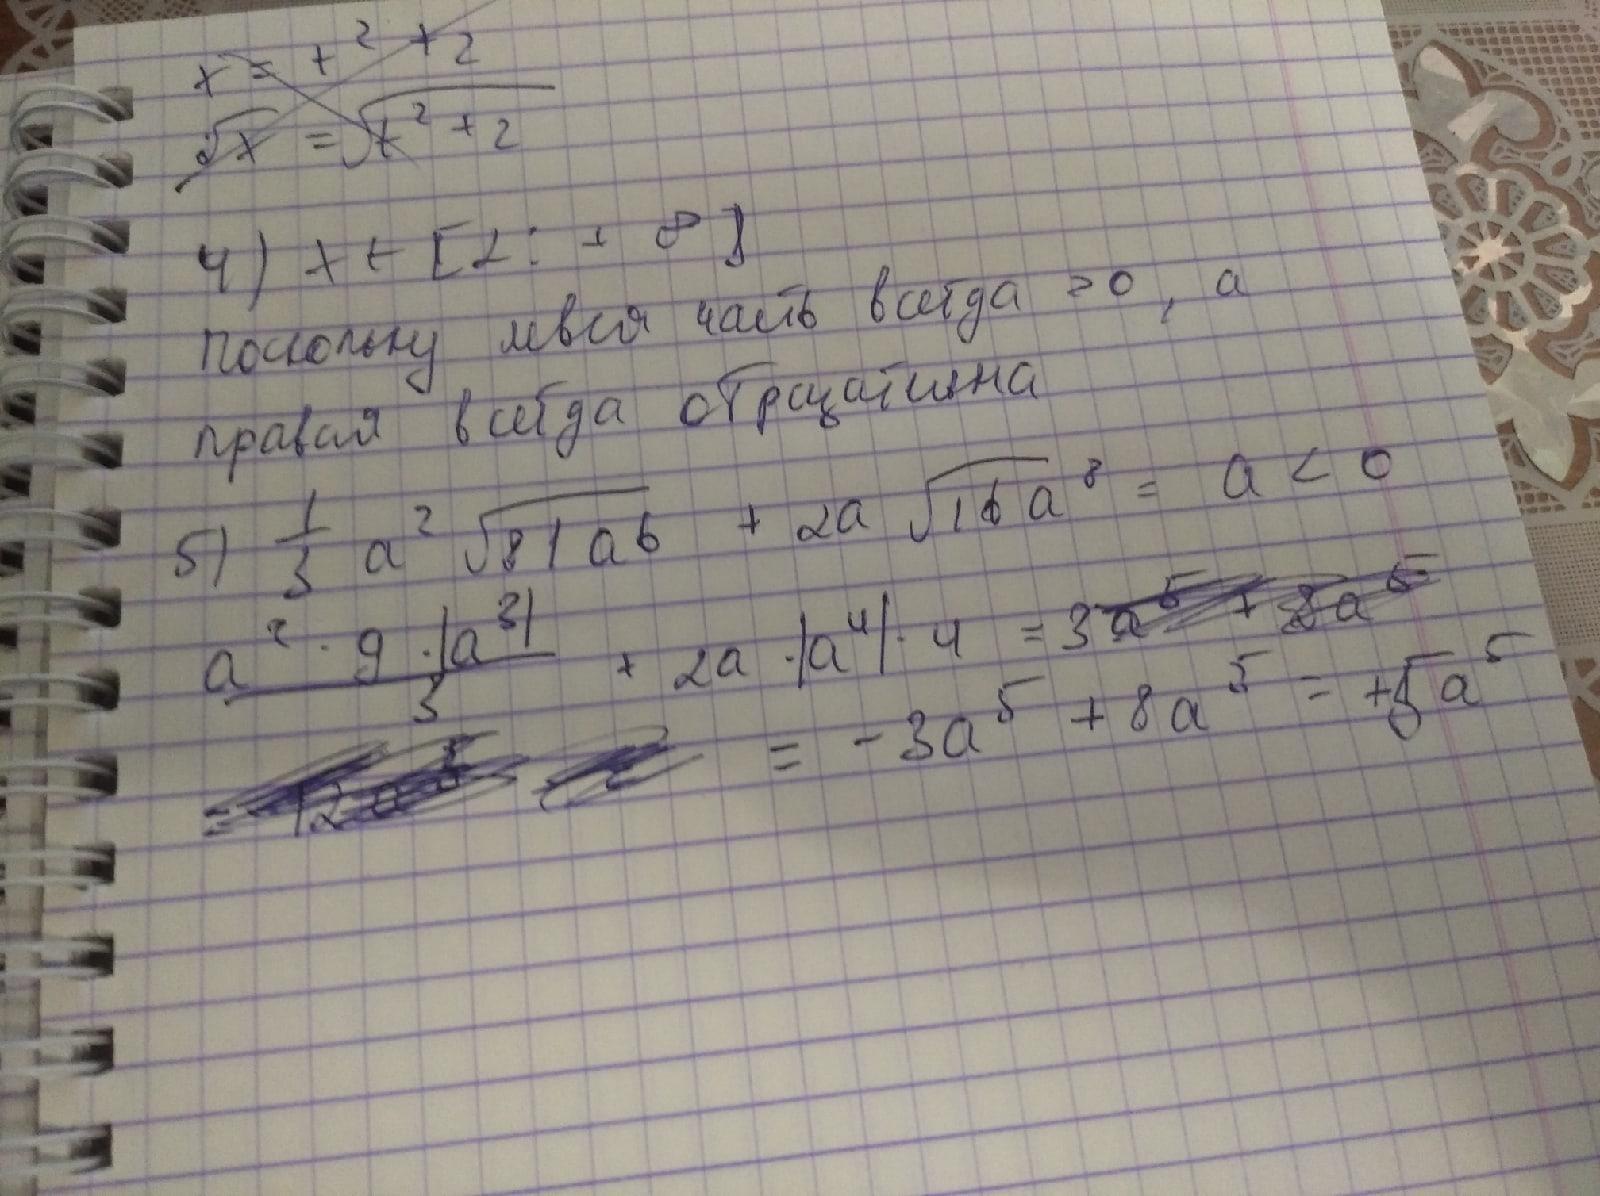 x = t² + 2
√x = √t² + 2
4) x ∈ [2; + ∞]
поскольку левая часть всегда ≥ 0, а
правая всегда отрацатильна
5) 1/3 a² √81a6 + 2a √16a⁸ = a < 0
a² · 9 · |a³| / 3 + 2a · |a⁴| · 4 = 3a⁵ + 8a⁵
= -3a⁵ + 8a⁵ = +5a⁵